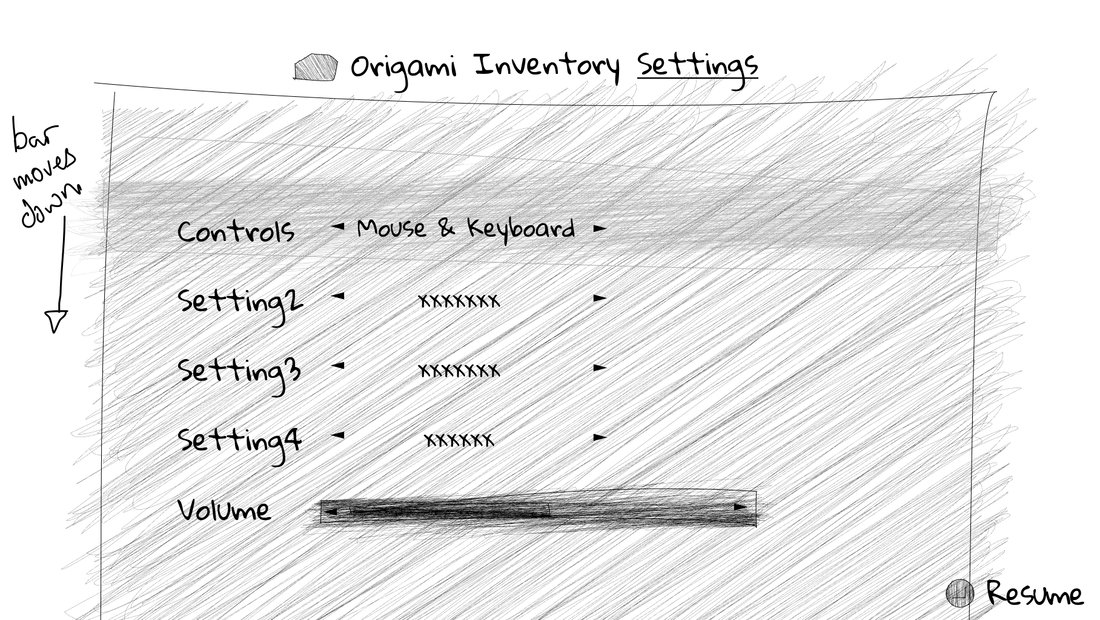 Origami Inventory Settings
bar
moves
down
Controls Mouse & Keyboard
Setting2 xxxxxxx
Setting3 xxxxxxx
Setting4 xxxxxx
Volume
Resume